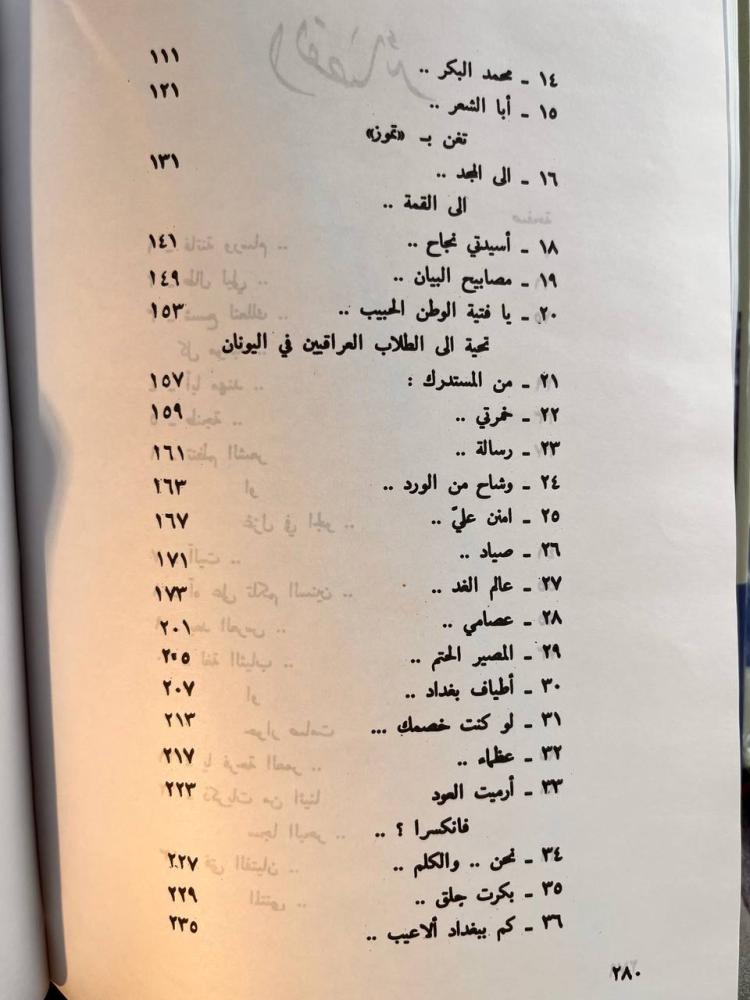 ١٤ ـ محمد البكر .. ١١١
١٥ ـ أبا الشعر .. ١٢١
تغن بـ «تموز»
١٦ ـ الى المجد .. ١٣١
الى القمة ..
١٨ ـ أسيدتي نجاح .. ١٤١
١٩ ـ مصابيح البيان .. ١٤٩
٢٠ ـ يا فتية الوطن الحبيب .. ١٥٣
تحية الى الطلاب العراقيين في اليونان
٢١ ـ من المستدرك : ١٥٧
٢٢ ـ خمرتي .. ١٥٩
٢٣ ـ رسالة .. ١٦١
٢٤ ـ وشاح من الورد .. ١٦٣
٢٥ ـ امنن عليّ .. ١٦٧
٢٦ ـ صياد .. ١٧١
٢٧ ـ عالم الغد .. ١٧٣
٢٨ ـ عصامي .. ٢٠١
٢٩ ـ المصير المحتم .. ٢٠٥
٣٠ ـ أطياف بغداد .. ٢٠٧
٣١ ـ لو كنت خصمك ... ٢١٣
٣٢ ـ عظماء .. ٢١٧
٣٣ ـ أرميت العود ٢٢٣
فانكسرا ؟ ..
٣٤ ـ نحن .. والكلم .. ٢٢٧
٣٥ ـ بكرت جلق .. ٢٢٩
٣٦ ـ كم ببغداد ألاعيب .. ٢٣٥
٢٨٠